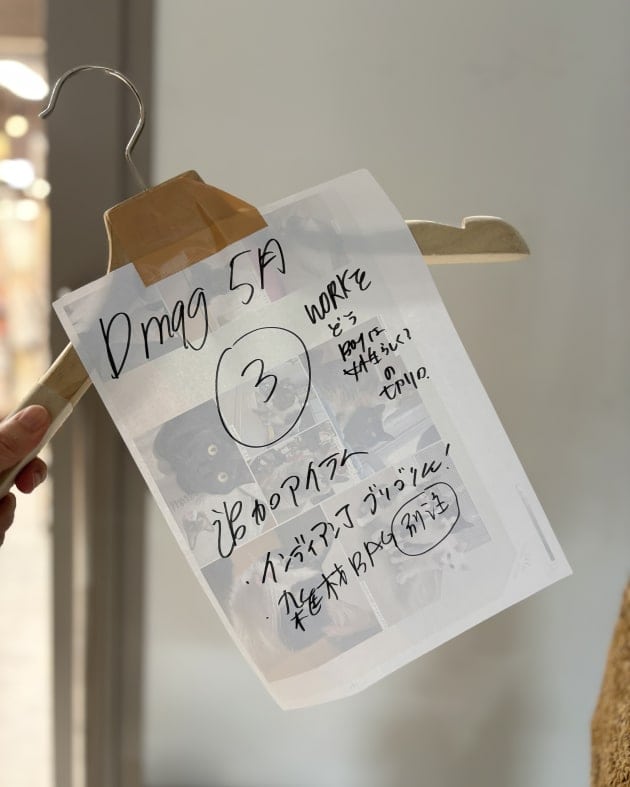 Dmag 5月
③
WORKを
どう
女性らしく?
の
切り口。
追加アイテム
・インディアンJ ブリブリくん!
・雑材BAG 別注